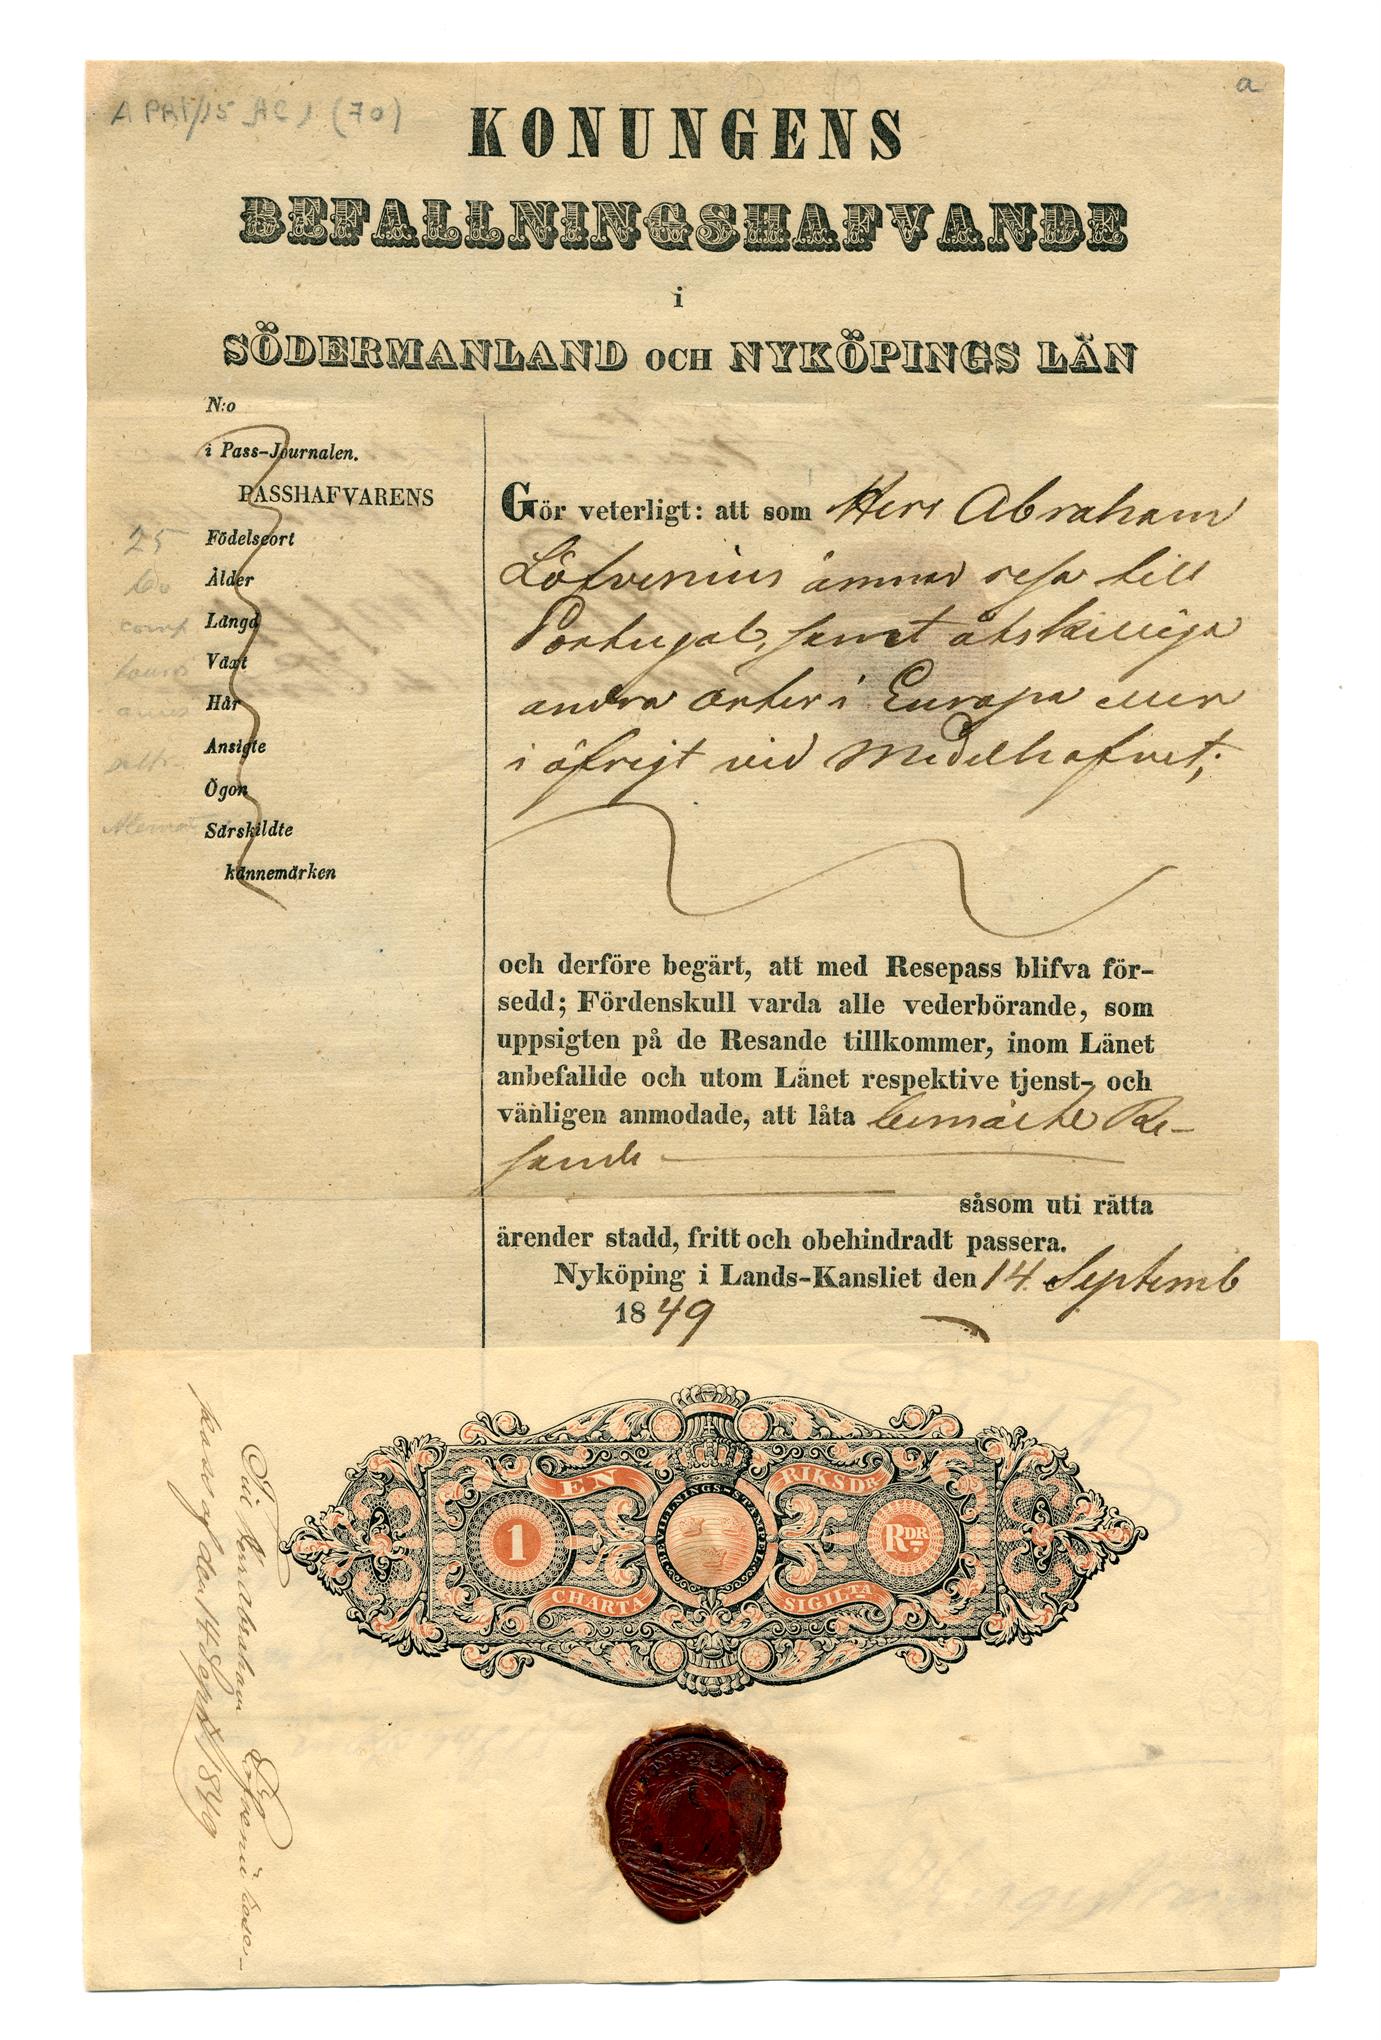 A PRI/15 AC1 (70)
a
KONUNGENS
BEFALLNINGSHAFVANDE
i
SÖDERMANLAND OCH NYKÖPINGS LÄN
N:o
i Pass-Journalen.
PASSHAFVARENS
Födelseort
Ålder
Längd
Växt
Hår
Ansigte
Ögon
Särskildte
kännemärken
25
comp
Gör veterligt: att som Herr Abraham
Löfvenius ämnar resa till
Portugal, samt åtskilliga
andra orter i Europa eller
i öfrigt vid Medelhafvet;
och derföre begärt, att med Resepass blifva för-
sedd; Fördenskull varda alle vederbörande, som
uppsigten på de Resande tillkommer, inom Länet
anbefallde och utom Länet respektive tjenst- och
vänligen anmodade, att låta bemälte Re-
sande
såsom uti rätta
ärender stadd, fritt och obehindradt passera.
Nyköping i Lands-Kansliet den 14 Septemb
1849
EN RIKSDR
BEVILLNINGS-STÄMPEL
1
RDR
CHARTA SIGILTA
Till Herr Abraham Löfvenii Rese-
pass af den 14 Sept 1849